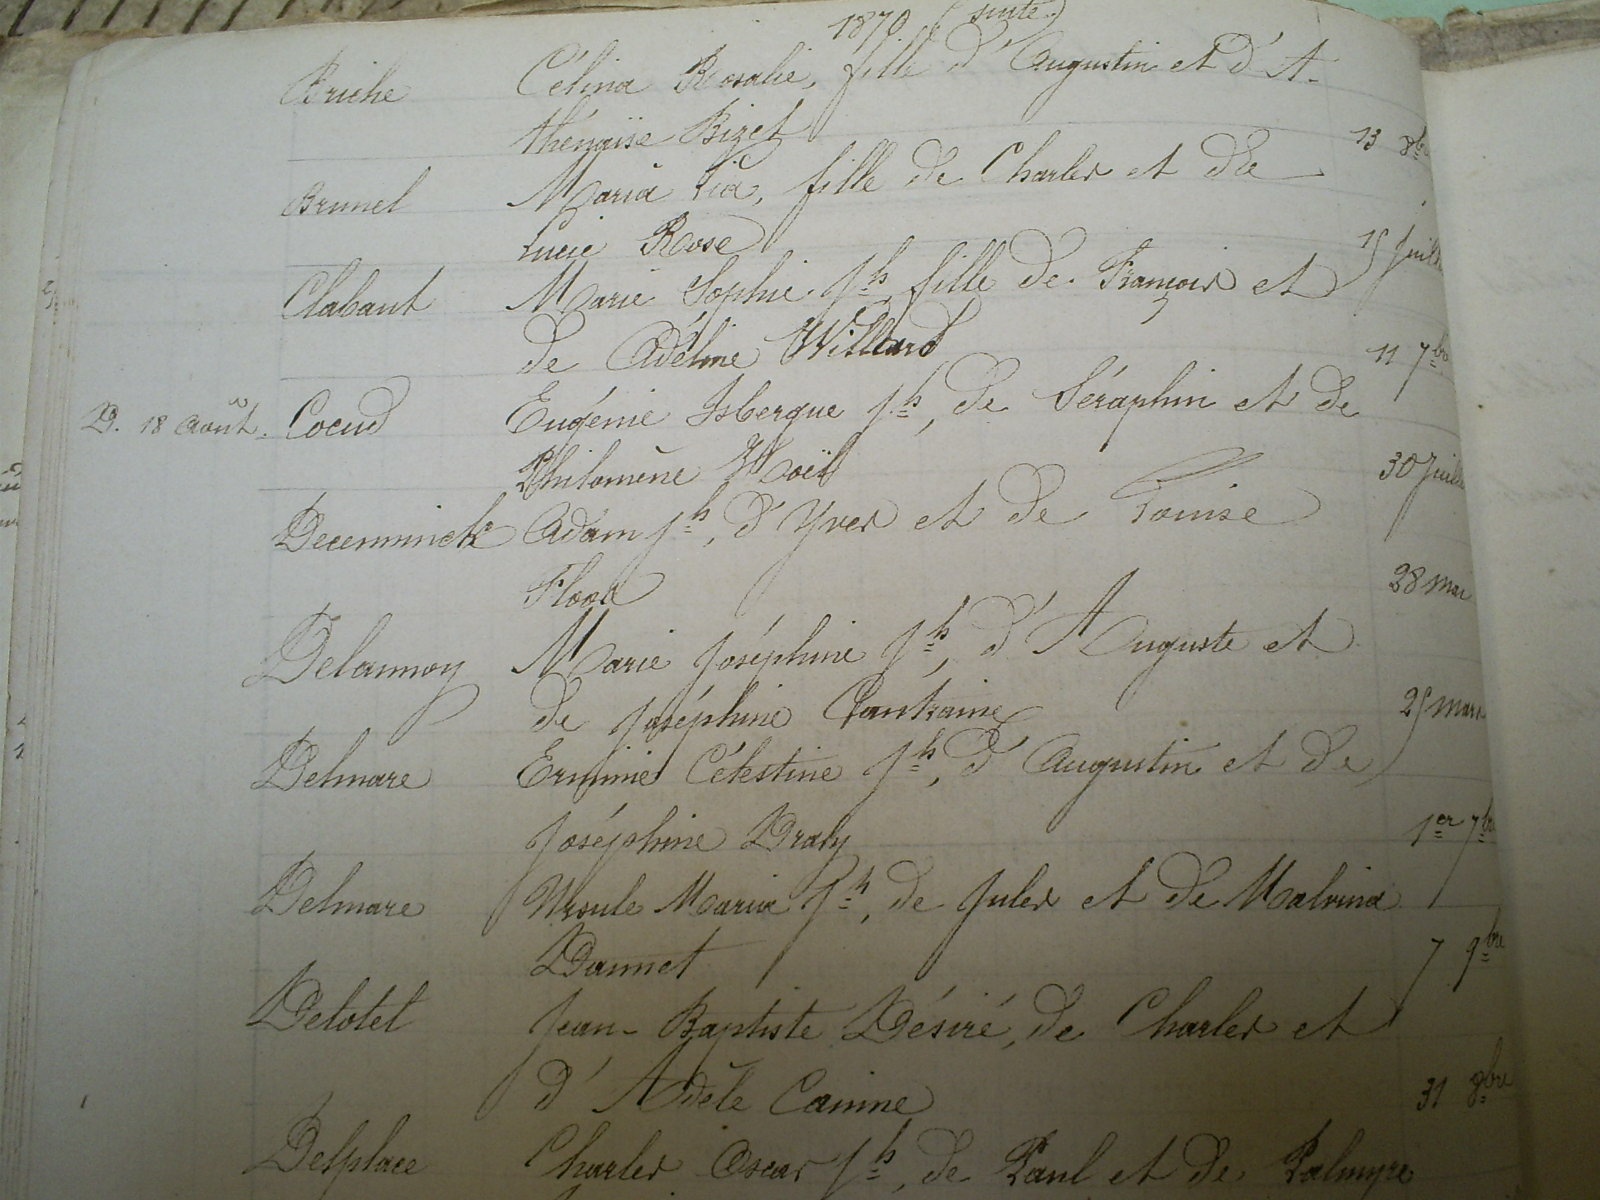 1870 (suite)
Briche Célina Rosalie, fille d'Augustin et d'A-
thénaïse Bizet 13 8bre
Brunel Maria Lia, fille de Charles et de
Lucie Rose 15 Juill
Clabaut Marie Sophie Jh fille de François et
de Adéline Willard 11 7bre
D. 18 Août. Coeud Eugénie Isbergue Jh, de Séraphin et de
Philomène Noël 30 Juill
Deceuninck Adam Jh, d'Yves et de Louise
Floor 28 Mar
Delannoy Marie Joséphine Jh, d'Auguste et
de Joséphine Cantraine 25 Mars
Delmare Erminie Célestine Jh, d'Augustin et de
Joséphine Braly 1er 7bre
Delmare Ursule Maria Jh, de Jules et de Malvina
Dannet 7 9bre
Delotel Jean-Baptiste Désiré, de Charles et
d'Adèle Canine 31 8bre
Delplace Charles Oscar Jh, de Paul et de Palmyre